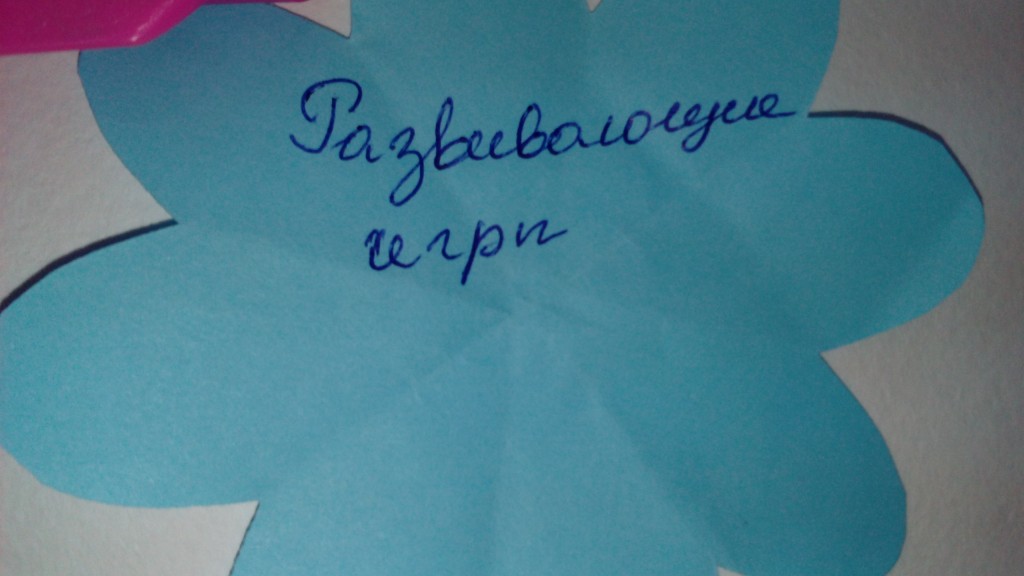 Развивающие
игры